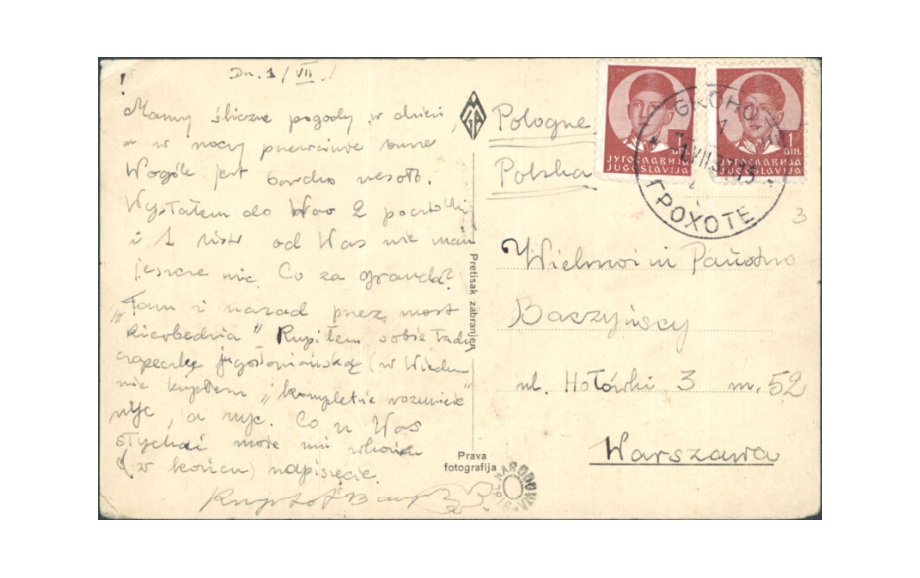 !
Dn. 1/VII.
Mamy śliczne pogody w dzień,
a w nocy przeważnie burze
Wogóle jest bardzo wesoło.
Wysłałem do Was 2 pocztówki
i 1 list od Was nie mam
jeszcze nic. Co za granda?
"Tam i nazad przez most
Kierbedzia" Kupiłem sobie ładną
czapeczkę (w Wiedniu
nie kupiłem "kompletnie rozumicie
nyc, a nyc. Co u Was
słychać może mi
(w końcu) napiszecie.
Krzysztof
Pretisak zabranjen
Prava
fotografija
MGA
Pologne
Polska
GROHOTE
ГРОХОТЕ
ЈУГОСЛАВИЈА
JUGOSLAVIJA
1 DIN.
ЈУГОСЛАВИЈА
JUGOSLAVIJA
3
Wielmożni Państwo
Baczyńscy
ul. Hołówki 3 m. 52
Warszawa
NARODOWA